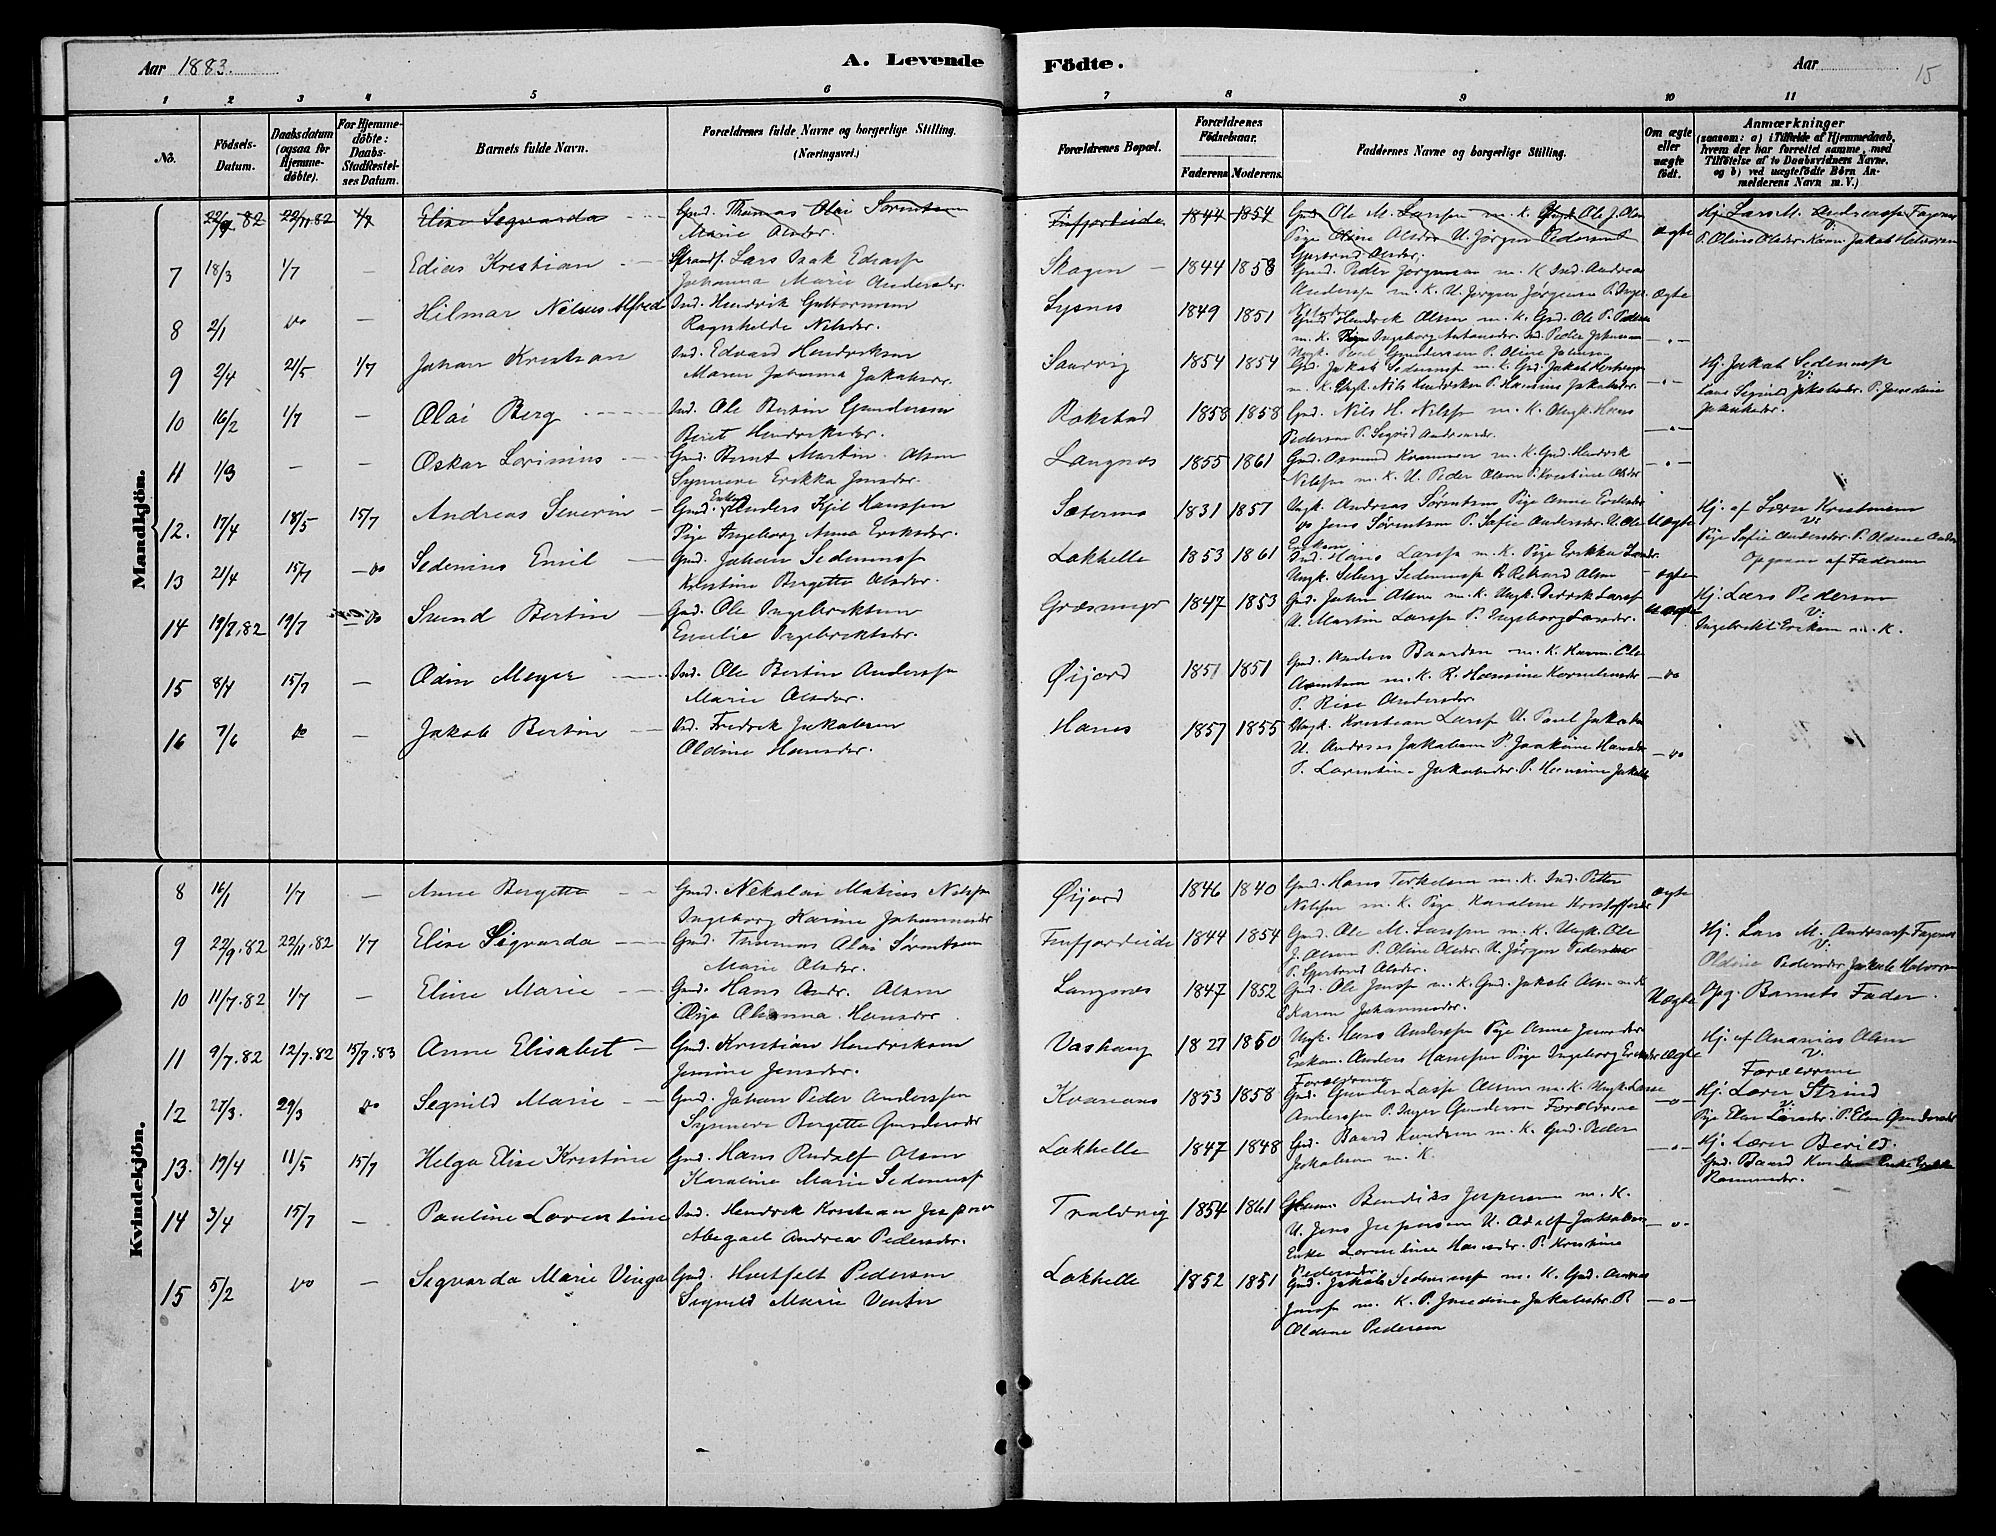 Aar 1883.
A. Levende Födte.
Aar
15
1 2 3 4 5 6 7 8 9 10 11
No.
Födsels-Datum.
Daabsdatum (ogsaa for Hjemme-döbte).
For Hjemme-döbte: Daabs-Stadfæstel-ses Datum.
Barnets fulde Navn.
Forældrenes fulde Navne og borgerlige Stilling. (Næringsvei.)
Forældrenes Bopæl.
Forældrenes Födselsaar.
Faderens Moderens.
Faddernes Navne og borgerlige Stilling.
Om ægte eller uægte födt.
Anmærkninger
(saasom: a) i Tilfælde af Hjemmedaab, hvem der har forrettet samme, med Tilföielse af to Daabsvidners Navne, og b) ved uægtefödte Börn An-melderens Navn m. V.)
Mandkjön.
22/9 82 22/11 82 1/7 Elise Segvarda Gmd. Thomas Olai Sörentsen
Marie Olsdr.
Finfjordeide 1844 1854 Gmd Ole M. Larssen m. K. Ungk Ole J. Olsen
Pige Oline Olsdr U. Jörgen Pedersen P.
Gjertrud Olsdr.
Ægte
Hj. Lars M. Andreassen Fagernes
V.
P. Oline Olsdr. Kone Jakob Halvorsen
7 18/3 1/7 — Edias Kristian Strands. Lars Isak Ediass
Johanna Marie Andersdr.
Skogen 1844 1858 Gmd. Peder Jörgensen m. K Ind. Andreas
Anderssen m. K. U. Jörgen Jörgensen P. Inger
Ægte
8 2/1 do — Hilmar Nelius Alfred Ind. Hendrik Guttormsen
Ragnhilde Nilsdr.
Lysnes 1849 1851 Gmd Hendrik Olsen m. K. Gmd. Ole P. Pedersen
m. K. Pige Ingeborg Antonsdr. Ind. Peder Johansen
Ungk. Paul Gundersen P. Oline Johans
9 2/4 21/5 1/7 Johan Kristian Ind. Edvard Hendriksen
Maren Johanna Jakobsdr.
Sandvig 1854 1854 Gmd. Jakob Sedeniuss m. K. Gmd. Jakob
m. K. Ungk. Nils Hendriksen P. Hansine Jakobsdr.
—"—
Hj. Jakob Sedeniuss
V.
Jakobsdr. P. Josedine
Jakobsdr.
10 16/2 1/7 — Olai Berg Ind. Ole Bertin Gundersen
Beret Hendriksdr.
Rokstad 1858 1858 Gmd. Nils H. Nilss m. K. Ungk. Hans
Pedersen P. Segrid Andreasdr.
—"—
11 1/3 — — Oskar Lorinius Gmd. Bernt Martin Olsen
Synneve Erikka Jonsdr.
Langnes 1855 1861 Gmd. Osmund Rasmussen m. K. Gmd. Hendrik
Nilssen m. K. U. Peder Olsen P. Kristine Olsdr
—"—
12. 17/4 18/5 15/7 Andreas Severin Gmd. Enkem. Anders Kjil Hanssen
Pige Ingeborg Anna Eriksdr.
Sætermo 1831 1857 Ungk. Andreas Sörentsen Pige Anne Eriksdr
do Jens Sörentsen P. Sofie Andersdr. U. Ole
Eriksen
Uægte
Hj. af Lærer Kristensen
V.
Pige Sofie Andersdr. P. Oldine Anders
Opgaven af Faderen
13 21/4 15/7 —do Sedenius Emil Gmd. Johan Sedeniuss
Kristine Bergette Olsdr.
Lakhelle 1853 1861 Ind. Hans Larss m. K. Pige Erikka Larsdr.
Ungk. Seberg Sedeniuss R. Rekard Olsen
Ægte
14 19/7.82 19/7 do Svend Bertin Gmd. Ole Ingebriktsen
Emelie Ingebriktsdr.
Græsmyr 1847 1853 Gmd. Johan Olsen m. K. Ungk. Didrik Larss
U. Martin Larss P. Ingeborg Larsdr.
Ægte
Hj. Lars Pedersen
V.
Ingebrikt Eriksen m. K.
15 8/4 15/7 — Odin Meyer Ind. Ole Bertin Anderss
Marie Olsdr.
Øijord 1851 1851 Gmd. Anders Baardsen m. K. Ole
Arentsen m. K. K. Hansine Korneliusdr
P. Risa Andersdr.
—do
16 7/6 do — Jakob Bertin Ind. Fredrik Jakobsen
Oldine Hansdr.
Hanes 1857 1855 Ungk. Kristian Larss U. Paul Jakobsen
U. Andreas Jakobsen P. Joakine Hansdr
P. Lorentine Jakobsdr. P. Hansine Jakobs
—do
Kvindekjön.
8 16/1 1/7 — Anne Bergette Gmd. Nekolai Matius Nilss
Ingeborg Karine Johannesdr
Øijord 1846 1840 Gmd. Hans Terkelsen m. K. Ind. Petter
Nilssen m. K. Pige Karoline Kristoffersdr
Ægte
9 22/9.82 22/11.82 1/7 Elise Sigvarda Gmd. Thomas Olai Sörentsen
Marie Olsdr.
Finfjordeide 1844 1854 Gmd. Ole M. Larssen m. K. Ungk. Ole
J. Olsen P. Oline Olsdr. U. Jörgen Pedersen
P. Gjertrud Olsdr.
Hj. Lars M. Andreass Fagernes
V.
Oldine Pedersdr Jakob Halvorsen
10 11/7.82 1/7 — Eline Marie Gmd. Hans Andr. Olsen
Pige Olianna Hansdr
Langnes 1847 1852 Gmd. Ole Jenss m. K. Gmd. Jakob Olsen m. K
P. Karen Johannesdr.
Uægte
Opg. Barnets Fader.
11 9/7.82 12/7.82 15/7.83 Anne Elisabet Gmd. Kristian Hendriksen
Jensine Jensdr.
Vashaug 1827 1850 Ungk. Hans Anderssen Pige Anne Jensdr
Enkem. Anders Hanssen Pige Ingeborg Eriksdr
Forældrene
Ægte
Hj. af Ananias Olsen
V.
Forældrene
12 27/3. 29/3 do Segnild Marie Gmd. Johan Peder Anderssen
Synneve Bergette Gundersdr
Kvænans 1853 1858 Gmd. Gunder Lasse Olsen m. K. Ungk. Lasse
Anderssen P. Inger Gundersen Forældrene
—o—
Hj. Lærer Strind
V.
Pige Elen Larsdr. P. Elen Gundersdr
13. 19/4 11/5 15/7 Helga Elise Kristine Gmd. Hans Rudolf Olsen
Karoline Marie Sedeniusd
Lakhelle 1847 1848 Gmd. Baard Knudsen m. K. Gmd. Peder
Jakobsen m. K.
—o—
Hj. Lærer Berild.
Gmd. Baard Knudsen Enke
Rasmusdr.
14 3/4 15/7 — Pauline Lorentine Ind. Hendrik Kristian Jespersen
Abegael Andrea Pedersdr.
Traldvig 1854 1861 Bendiks Jespersen m. K.
U. Jens Jespersen U. Adolf Jakobsen
Enke Lorentine Hansdr. P. Kristine
Pedersdr.
—o—
15 5/2 do — Segvarda Marie Vinga Gmd. Hvitfelt Pedersen
Segnild Marie Ventor
Lakhelle 1852 1851 Gmd. Jakob Sedeniuss m. K. Gmd. Andreas
Jenss m. K. P. Josedine Jakobsdr. P.
Oldine Pedersen
—o—